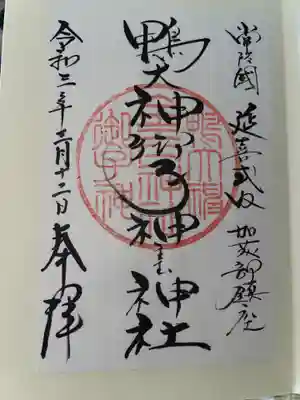 常陸國 延喜式内 加茂部鎮座
鴨大神御子神主玉神社
令和三年十二月十二日 奉拝